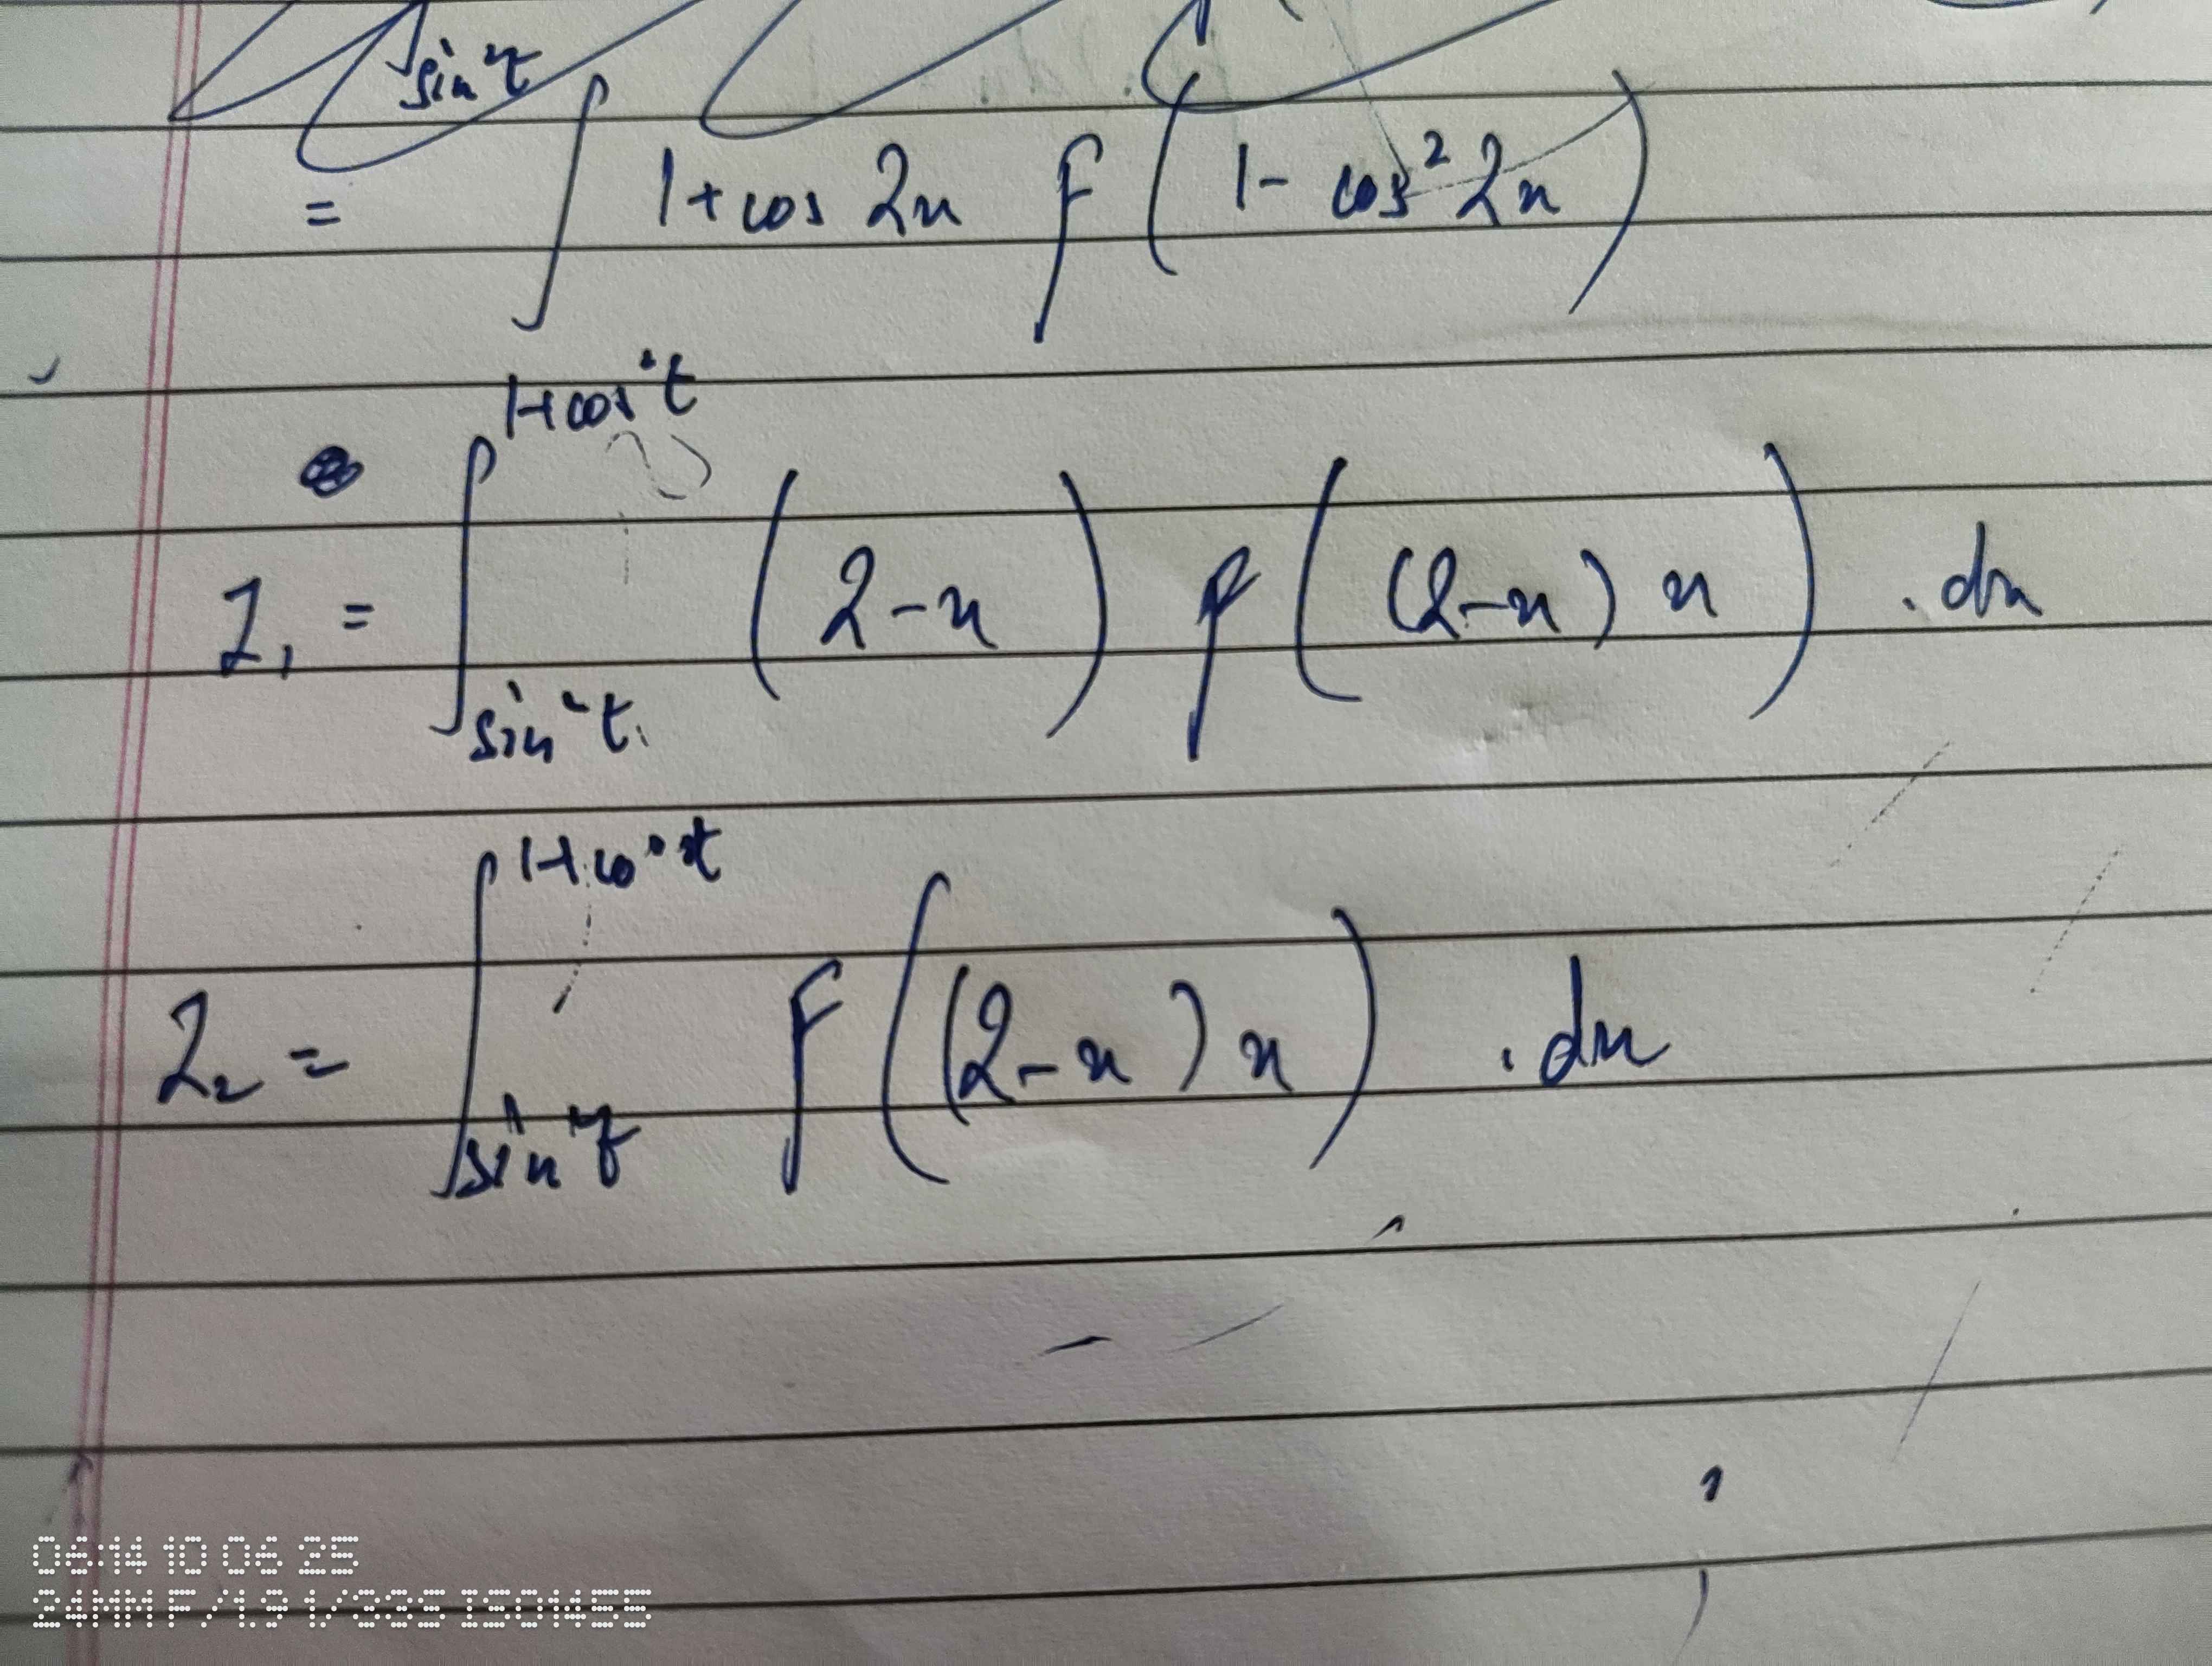 sin²t
= ∫ 1+cos 2x f(1- cos² 2x)
I₁ = ∫_{sin²t}^{1+cos²t} (2-x) f((2-x)x) .dx
I₂ = ∫_{sin²t}^{1+cos²t} f((2-x)x) .dx
06:14 10 06 25
24MM F/1.9 1/33S ISO1455